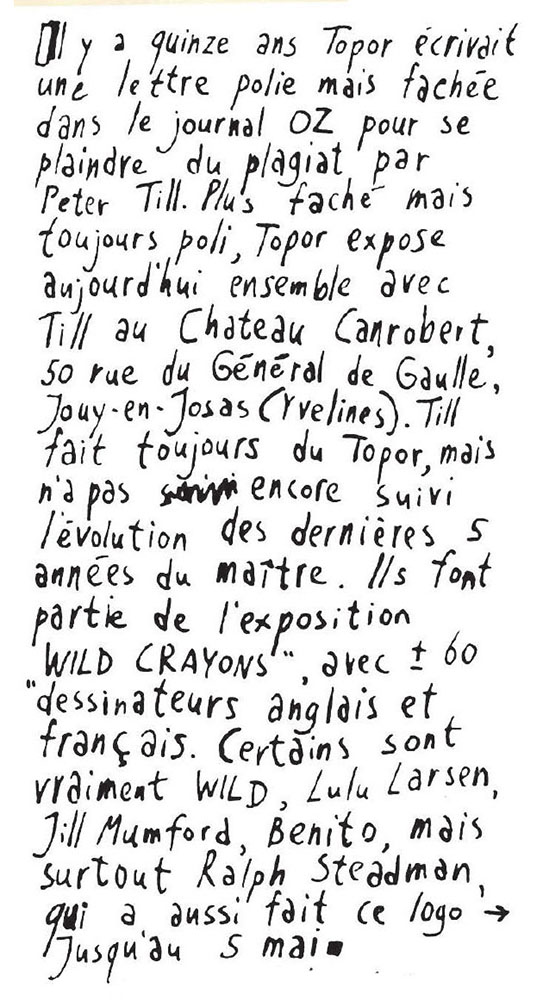 Il y a quinze ans Topor écrivait
une lettre polie mais fachée
dans le journal OZ pour se
plaindre du plagiat par
Peter Till. Plus faché mais
toujours poli, Topor expose
aujourd'hui ensemble avec
Till au Chateau Canrobert,
50 rue du Général de Gaulle,
Jouy-en-Josas (Yvelines). Till
fait toujours du Topor, mais
n'a pas encore suivi
l'évolution des dernières 5
années du maître. Ils font
partie de l'exposition
"WILD CRAYONS", avec ± 60
dessinateurs anglais et
français. Certains sont
vraiment WILD, Lulu Larsen,
Jill Mumford, Benito, mais
surtout Ralph Steadman,
qui a aussi fait ce logo →
Jusqu'au 5 mai▪